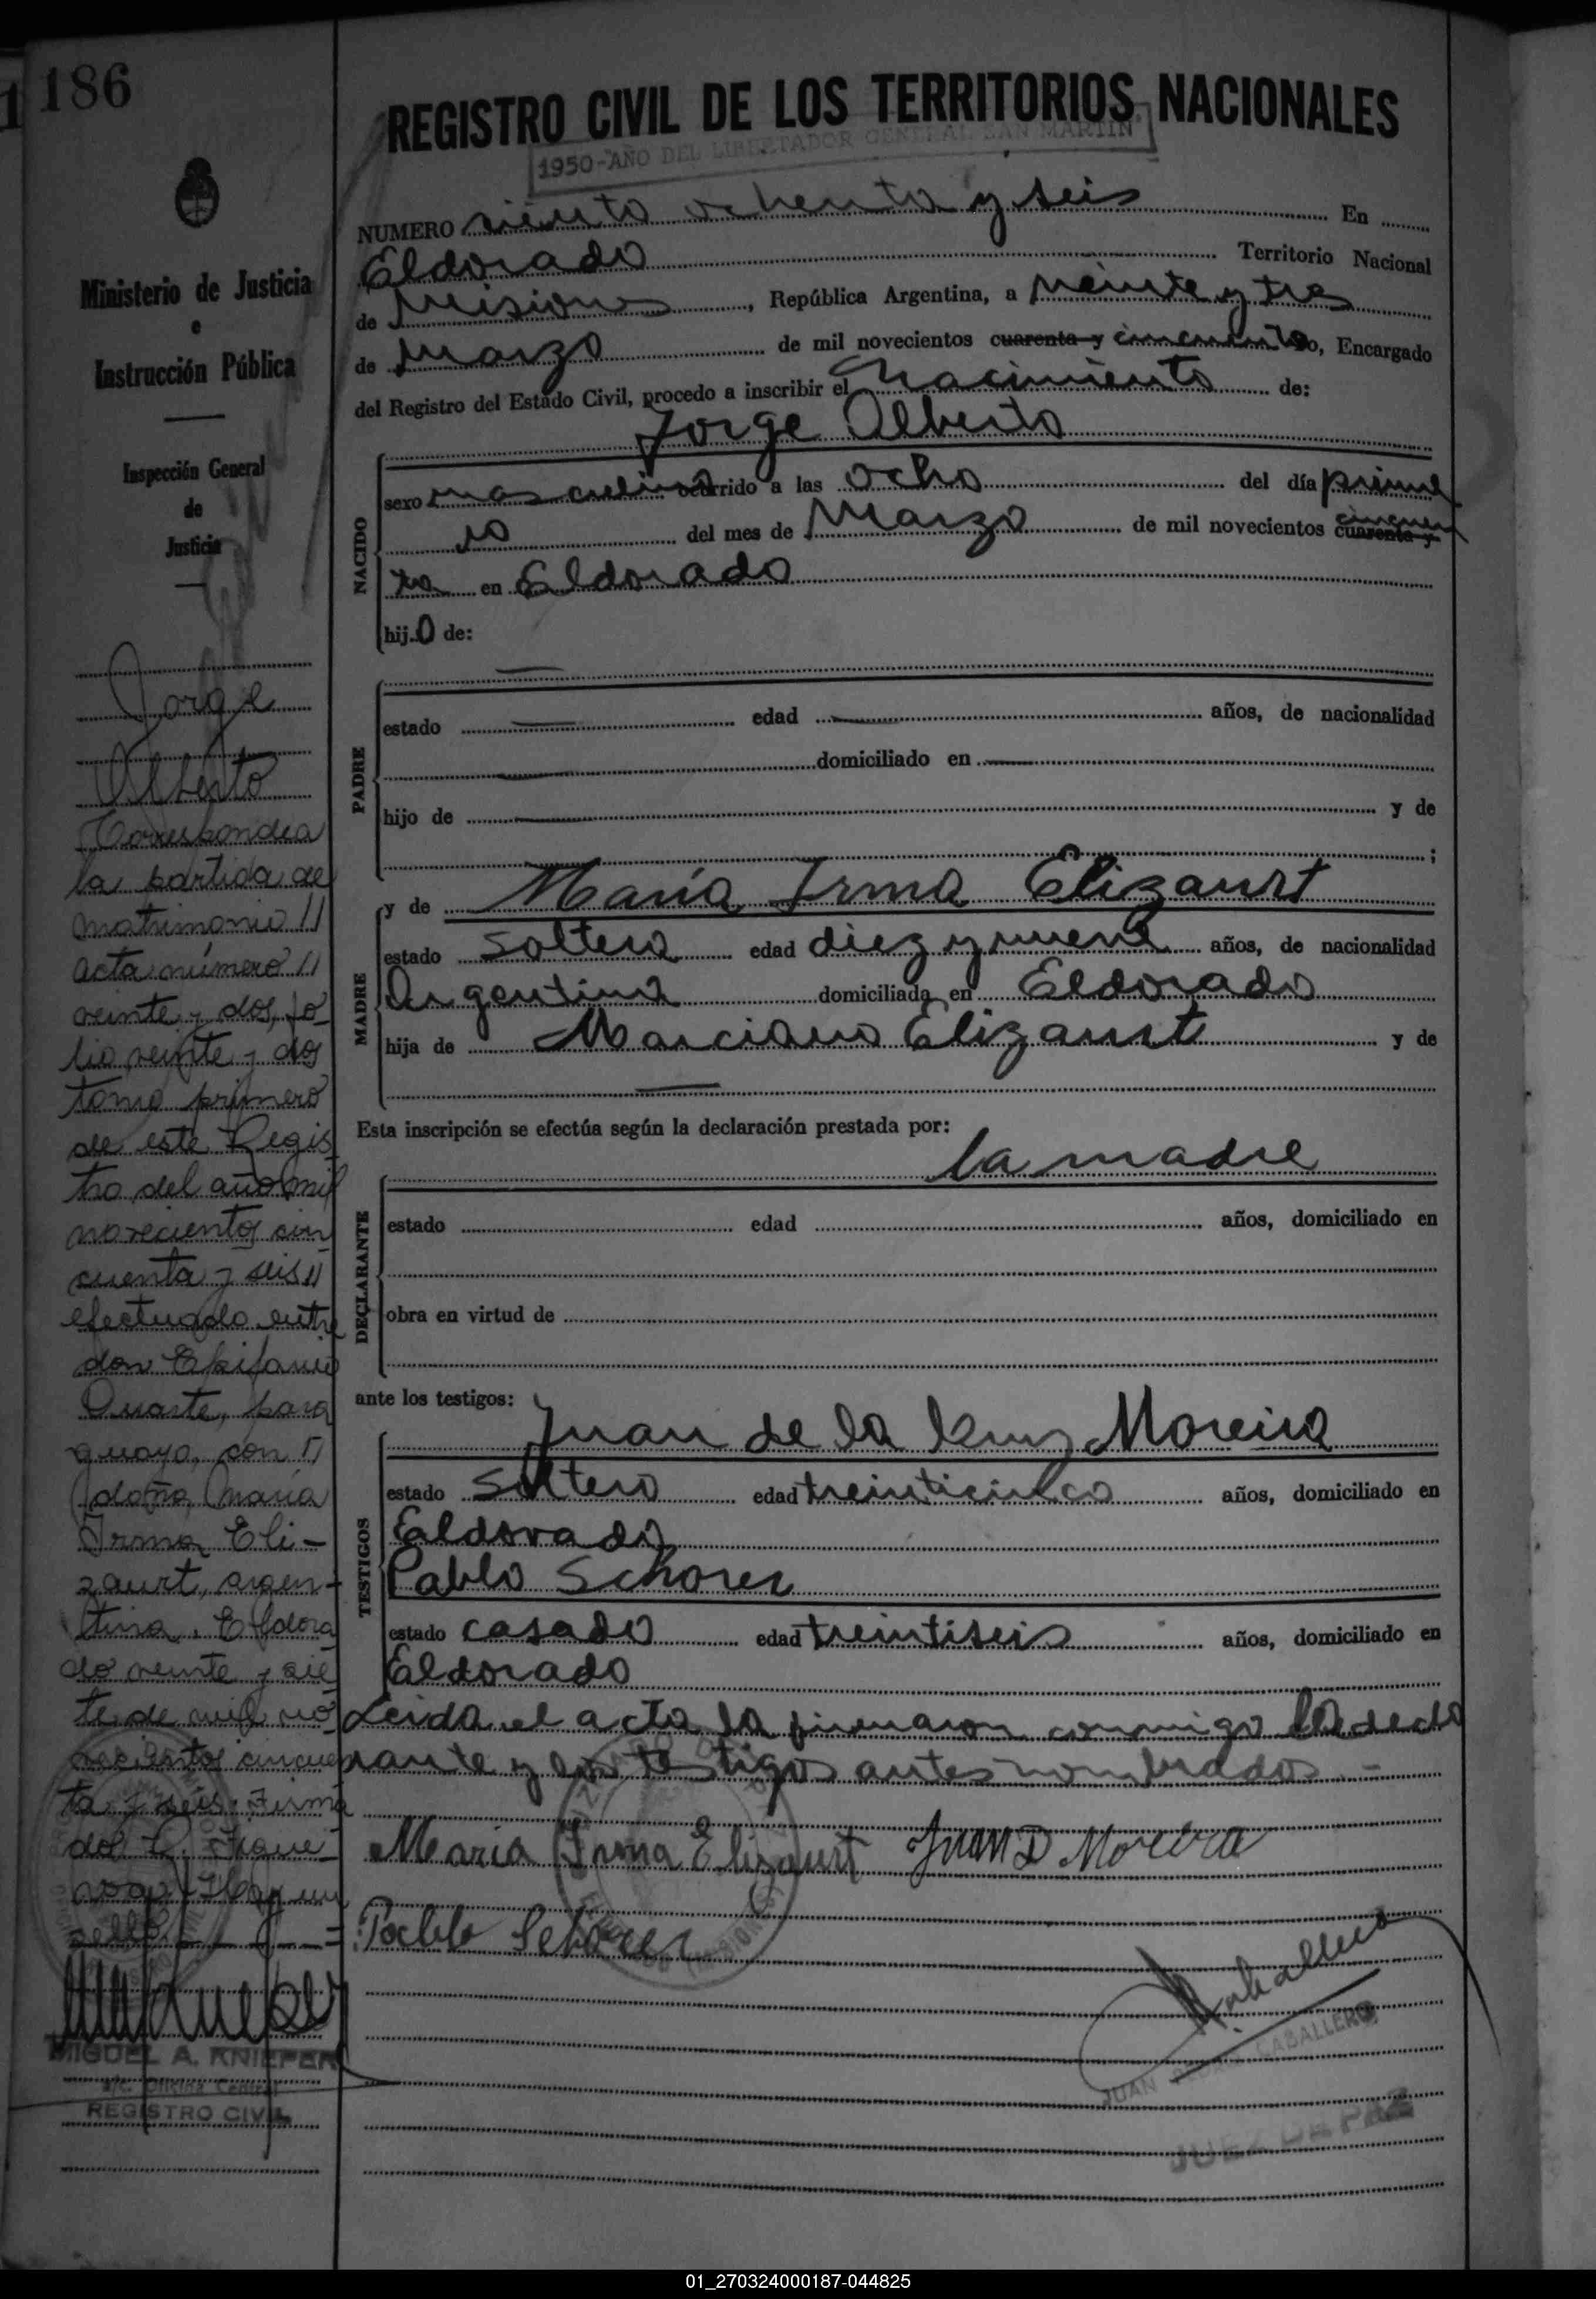 186
Ministerio de Justicia
e
Instrucción Pública
Inspección General
de
Justicia
Jorge
Alberto
Corresponde a
la partida de
matrimonio //
acta número //
veinte y dos, fo_
lio veinte y dos
tomo primero
de este Regis_
tro del año mil
novecientos cin_
cuenta y seis //
efectuado entre
don Epifanio
Duarte, para
guayo, con //
doña María
Irma Eli-
zaurt, argen-
tina. Eldora
do veinte y sie_
te de mil no_
vecientos cincuen
ta y seis. Firma
do: Figue_
roa. Hay un
sello
MIGUEL A. KNIEPER
a/c. Oficina Central
REGISTRO CIVIL
REGISTRO CIVIL DE LOS TERRITORIOS NACIONALES
1950-AÑO DEL LIBERTADOR GENERAL SAN MARTIN
NUMERO ciento ochenta y seis En
Eldorado Territorio Nacional
de Misiones, República Argentina, a veinte y tres
de Marzo de mil novecientos cuarenta y cincuenta yo, Encargado
del Registro del Estado Civil, procedo a inscribir el Nacimiento de:
Jorge Alberto
NACIDO
sexo masculino ocurrido a las ocho del día prime
ro del mes de Marzo de mil novecientos cuarenta y cincuen
ta en Eldorado
hijo de:
PADRE
estado edad años, de nacionalidad
domiciliado en
hijo de y de
;
MADRE
y de María Irma Elizaurt
estado soltera edad diez y nueve años, de nacionalidad
Argentina domiciliada en Eldorado
hija de Marciano Elizaurt y de
Esta inscripción se efectúa según la declaración prestada por:
la madre
DECLARANTE
estado edad años, domiciliado en
obra en virtud de
ante los testigos:
Juan de la Cruz Moreira
TESTIGOS
estado soltero edad treinticinco años, domiciliado en
Eldorado
Pablo Schorer
estado casado edad treintiseis años, domiciliado en
Eldorado
Leida el acta la firmaron conmigo la decla
rante y los testigos antes nombrados.-
Maria Irma Elizaurt Juan D Moreira
Pablo Schorer
JUAN CABALLERO
JUEZ DE PAZ
01_270324000187-044825